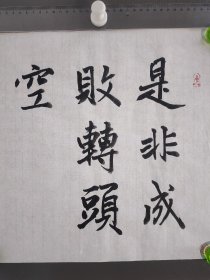 是非成
敗轉頭
空